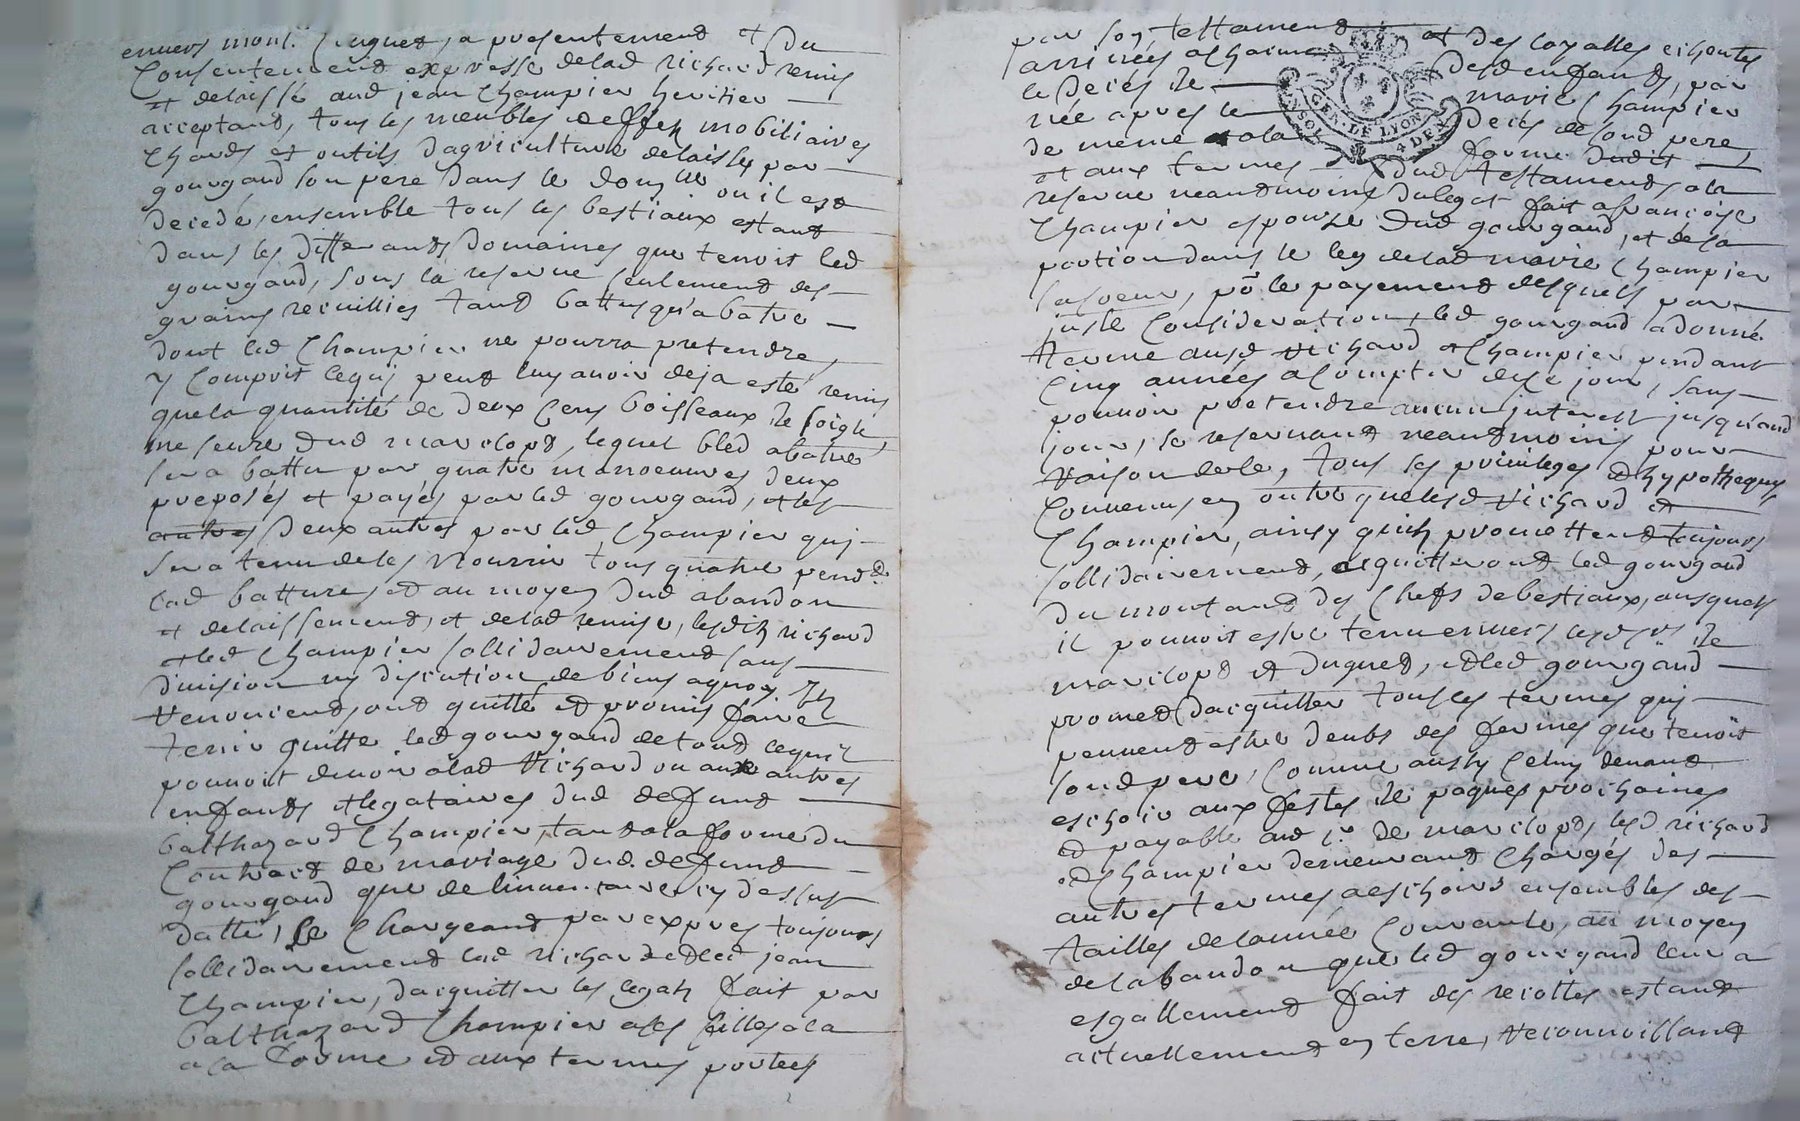 envers mons.r Duguet, a presentement et du
Consentement expresse delad richard remis
et delaissé aud jean Champier heritier
acceptant, tous les meubles deffets mobiliaires
Chards et outils dagriculture delaissés par
gourgand son pere dans le domlle ou il est
decedé, ensemble tous les bestiaux estant
dans les differands Domaines que tenoit led
gourgand, sous la reserve seulement des
grains recuillies tant battus qu'abatre
dont led Champier ne pourra pretendre,
y compris cequj peut luy avoir deja esté remis
quela quantité de deux Cens boisseaux de soigle
meseure dud marclopt, lequel bled abatre
sera battu par quatre manoeuvres deux
preposés et payés par led gourgand, et les
autres deux autres par led Champier quj
sera tenu deles Nourrir tous quatre pend.t
lad batture, et au moyen dud abandon
et delaissement, et delad remise, lesdits richard
et led Champier sollidairement sans
division ny discution de biens aquoy ils
renoncent, ont quitté et promis faire
tenir quitte led gourgand detout cequil
pouvoit devoir alad Richard ou aux autres
enfants et legataires dud defunt
balthazard Champier, tant ala forme du
Contract de mariage dud. defunt
gourgand que de linventaire cy dessus
datté, se Chargeant par expres toujours
sollidairement lad richard et led jean
Champier, dacquitter les legats fait par
balthazard Champier ases filles ala
ala forme et aux termes portees
par son testament et des loyalles echoutes
arrivées
le deces de desd enfants, par
née apres le marie Champier
de meme ala deces desond pere,
et aux termes forme dudit
dud testament, ala
reserve neantmoins dulegat fait a françoise
Champier espouse dud gourgand, et de sa
portion dans le leg delad marie Champier
sa soeur, po.r le payement desquels par
juste Consideration led gourgand a donné
terme ausd richard et Champier pendant
Cinq années a compter dece jour, sans
pouvoir pretendre aucun interest jusqu'aud
jour, se reservant neantmoins pour
raison dele, tous ses privileges et hypotheques
Convenus en outre que lesd richard et
Champier, ainsy quils promettent toujours
sollidairement, acquitteront led gourgand
du montant des Chefs de bestiaux, ausquels
il pouvoit estre tenu envers lesd srs de
marclopt et duguet, et led gourgand
promet dacquitter tous les termes quj
peuvent estre deubs des fermes que tenoit
sond pere, Comme aussy Celuy devant
eschoir aux festes de paques prochaines
et payable aud s.r de marclopt, lesd richard
et Champier demeurant Chargés des
autres termes aeschoirs ensembles des
tailles delannée Courante, au moyen
delabandon que led gourgand leur a
esgallement fait des recoltes estant
actuellement en terre, reconnoissant
GEN. DE LYON
4 DEN